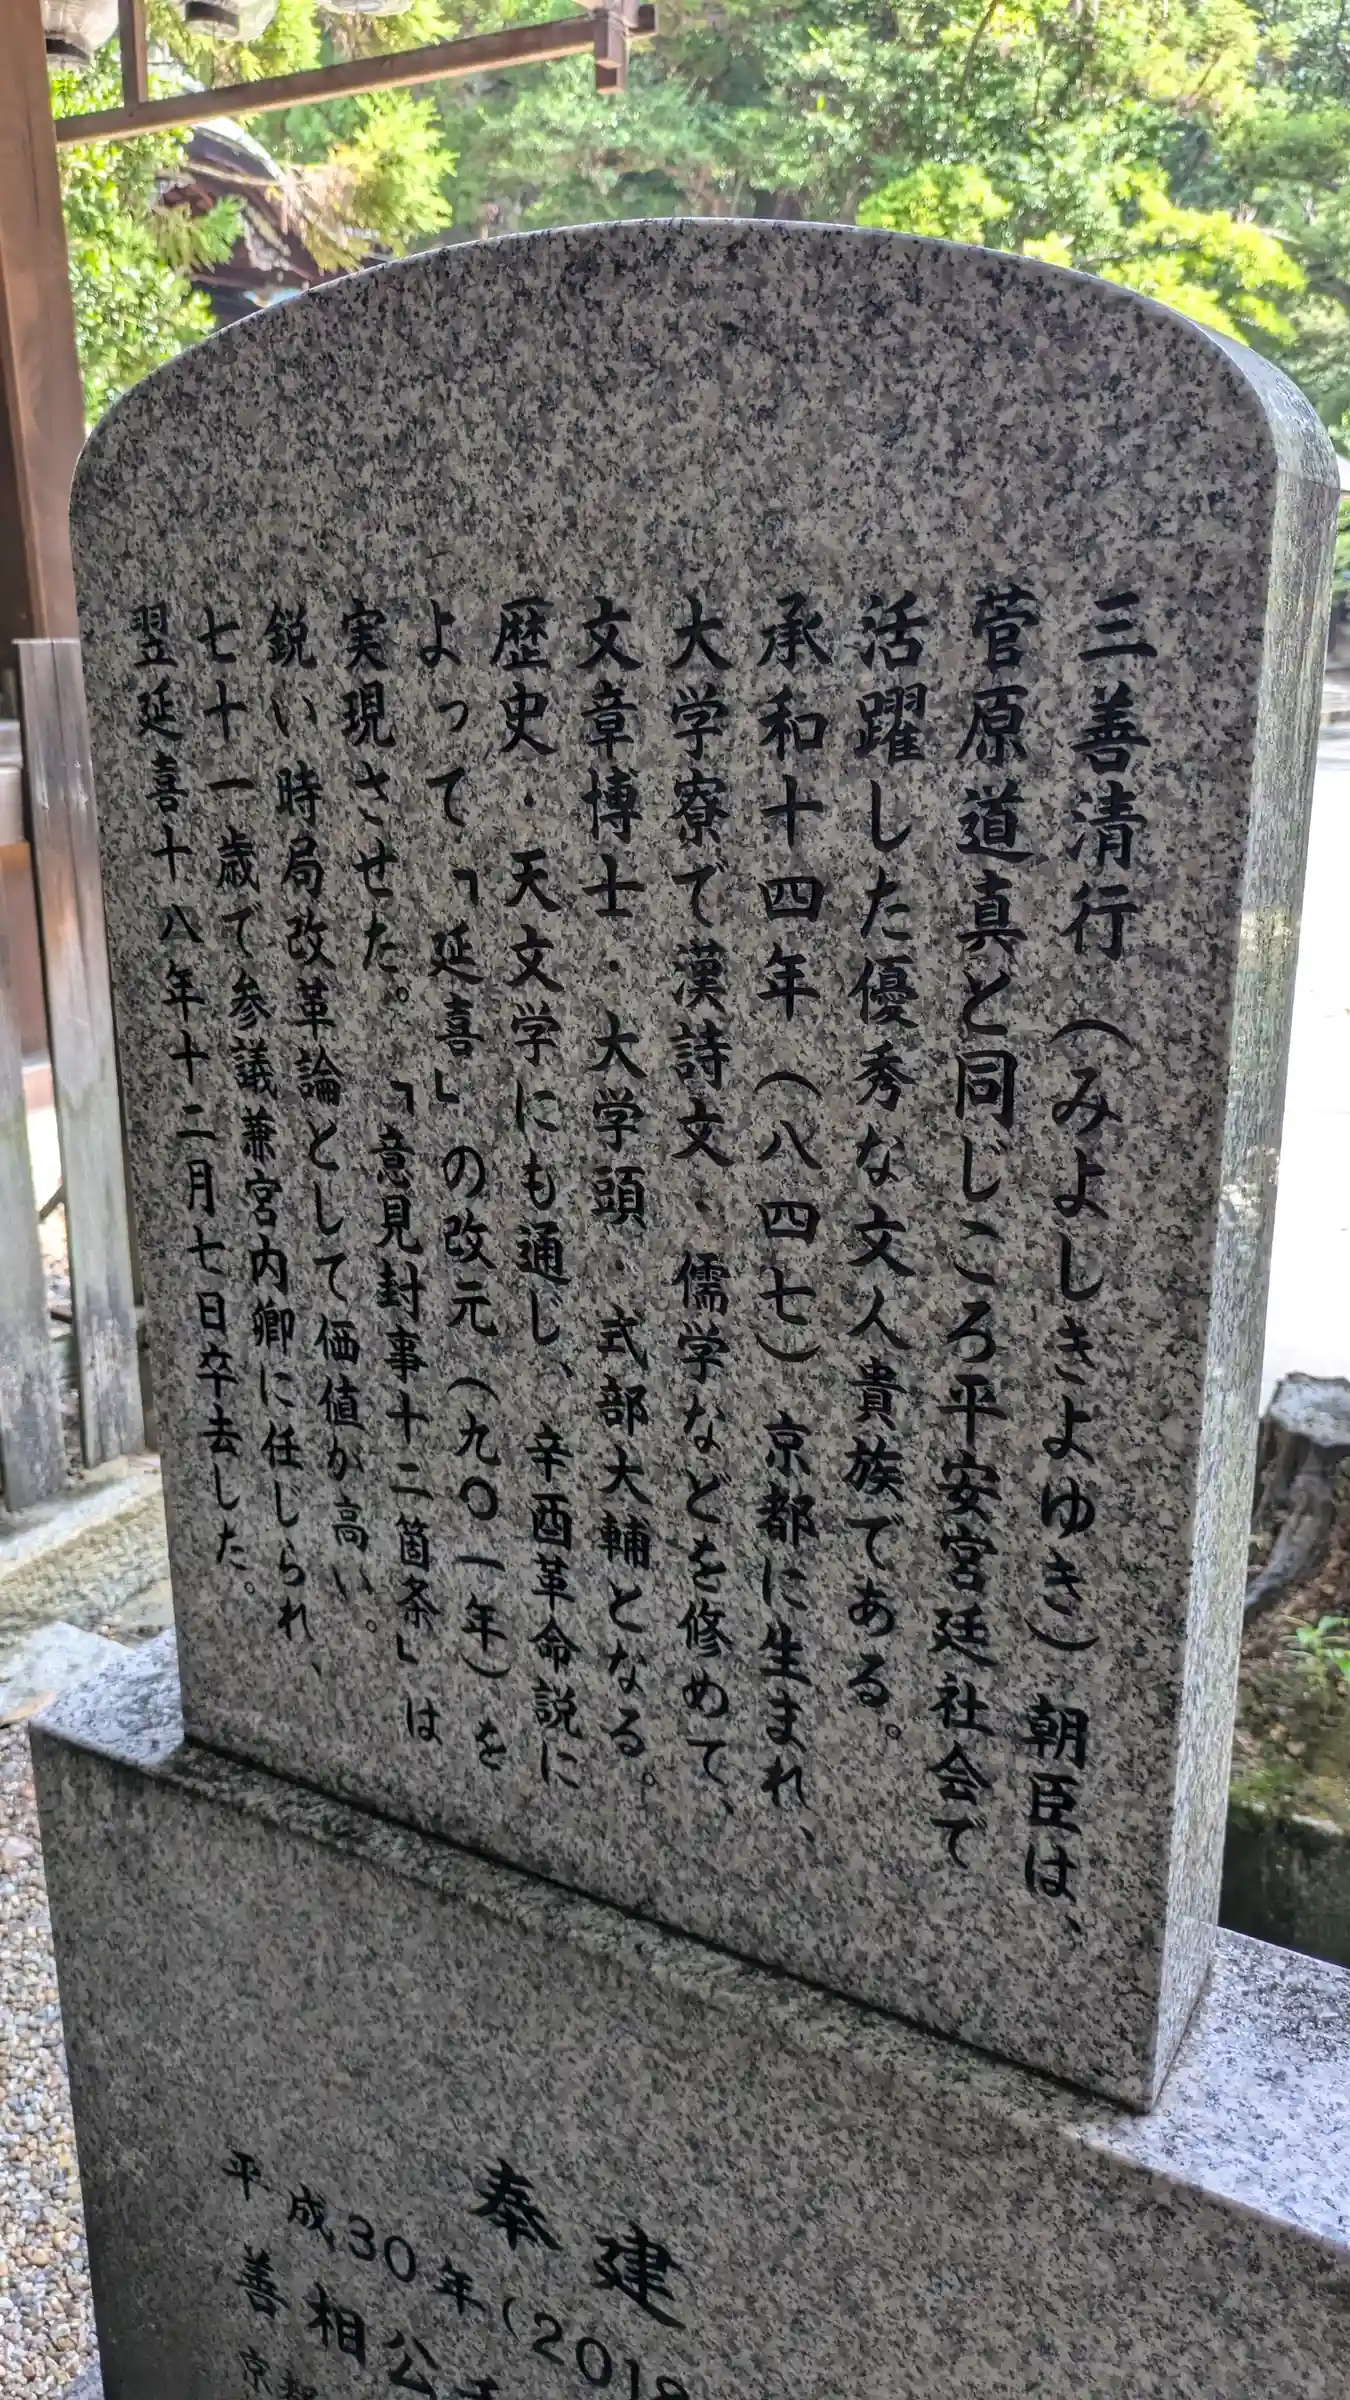 三善清行（みよしきよゆき）朝臣は、
菅原道真と同じころ平安宮廷社会で
活躍した優秀な文人貴族である。
承和十四年（八四七）京都に生まれ、
大学寮で漢詩文・儒学などを修めて、
文章博士・大学頭・式部大輔となる。
歴史・天文学にも通じ、辛酉革命説に
よって「延喜」の改元（九〇一年）を
実現させた。「意見封事十二箇条」は
鋭い時局改革論として価値か高い。
七十一歳で参議兼宮内卿に任じられ、
翌延喜十八年十二月七日卒去した。
奉建
平成30年（2018
善相公
京都